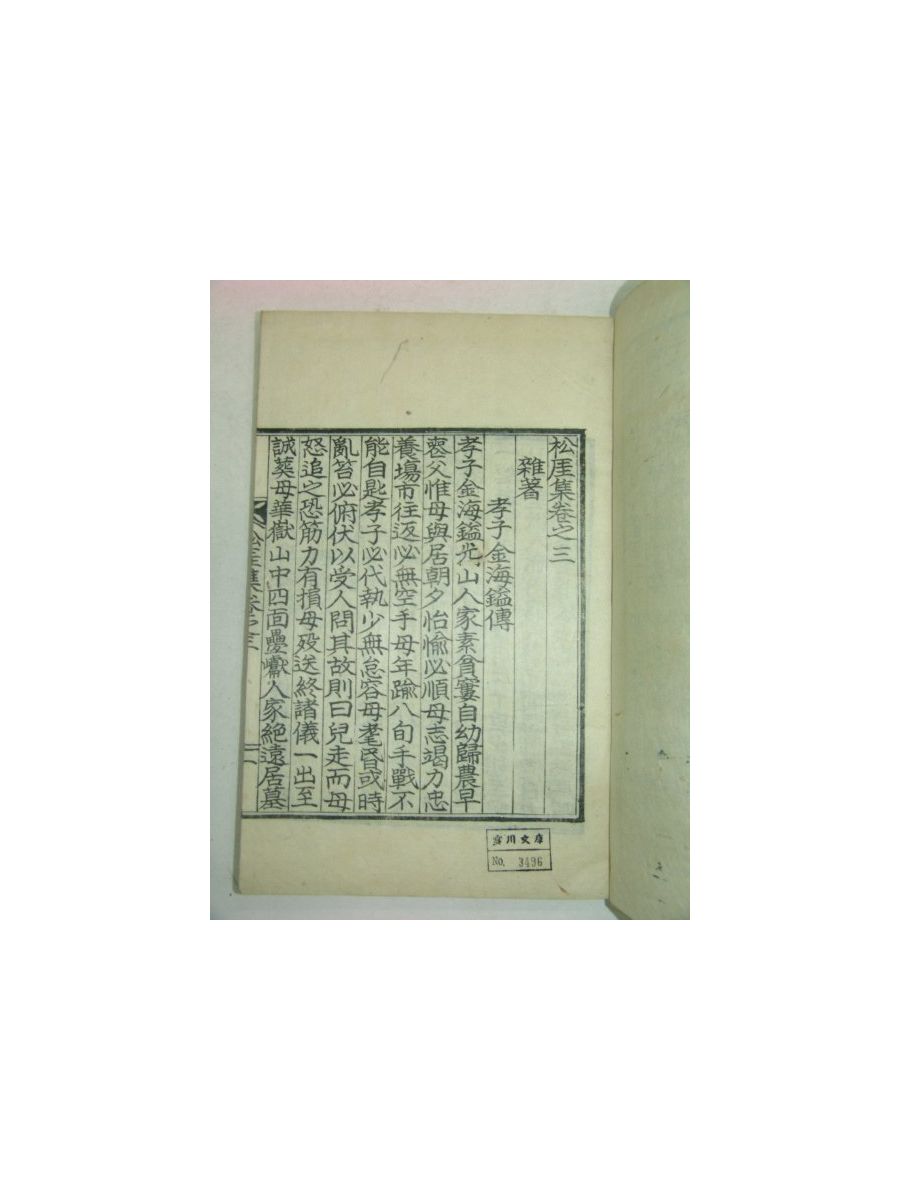 松厓集卷之三
雜著
孝子金海鎰傳
孝子金海鎰光山人家素貧窶自幼歸農早
喪父惟母與居朝夕怡愉必順母志竭力忠
養塲市往返必無空手母年踰八旬手戰不
能自匙孝子必代執少無怠容母耄昏或時
亂笞必俯伏以受人問其故則曰兒走而母
怒追之恐筋力有損母歿送終諸儀一出至
誠葬母華嶽山中四面疊巘人家絕遠居墓
松厓集卷之三
一
川文庫
No. 3496